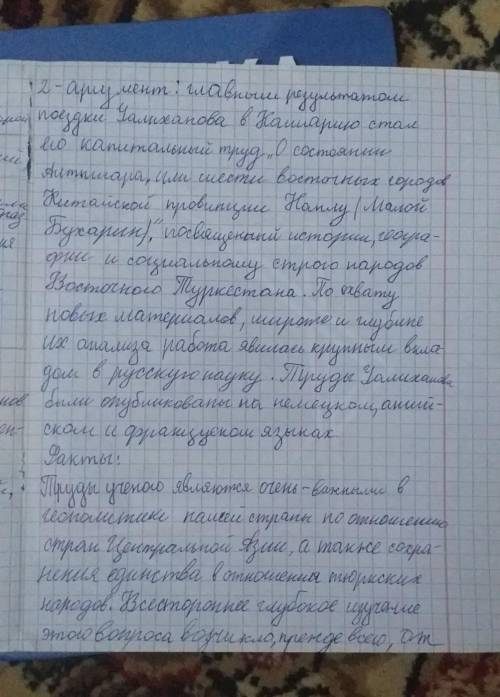 2-аргумент: главным результатом
поездки Уалиханова в Кашгарию стал
его капитальный труд „О состоянии
Алтышара, или шести восточных городов
Китайской провинции Нанлу (Малой
Бухарии)", посвященый истории, геогра-
фии и социальному строю народов
Восточного Туркестана. По охвату
новых материалов, широте и глубине
их анализа работа явилась крупным вкла-
дом в русскую науку. Труды Уалиханова
были опубликованы на немецком, англий-
ском и французском языках
Факты:
Труды ученого являются очень-важными в
геополитике нашей страны по отношению
стран Центральной Азии, а также сохра-
нения единства в отношения тюркских
народов. Всестороннее глубокое изучение
этого вопроса возникло, прежде всего, от